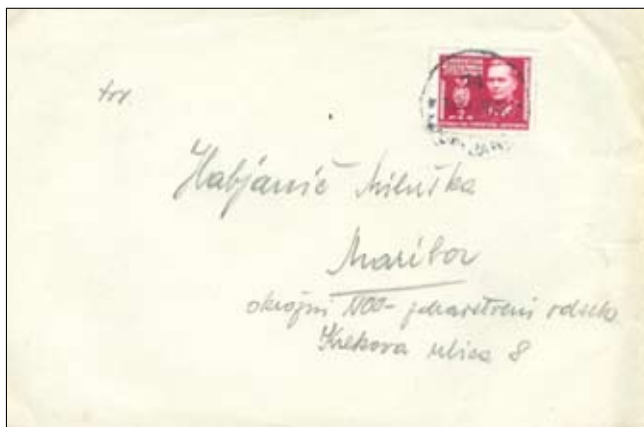 tov.
Habjanič Miluška
Maribor
okrožni NOO - zdravstveni odsek
Krekova ulica 8